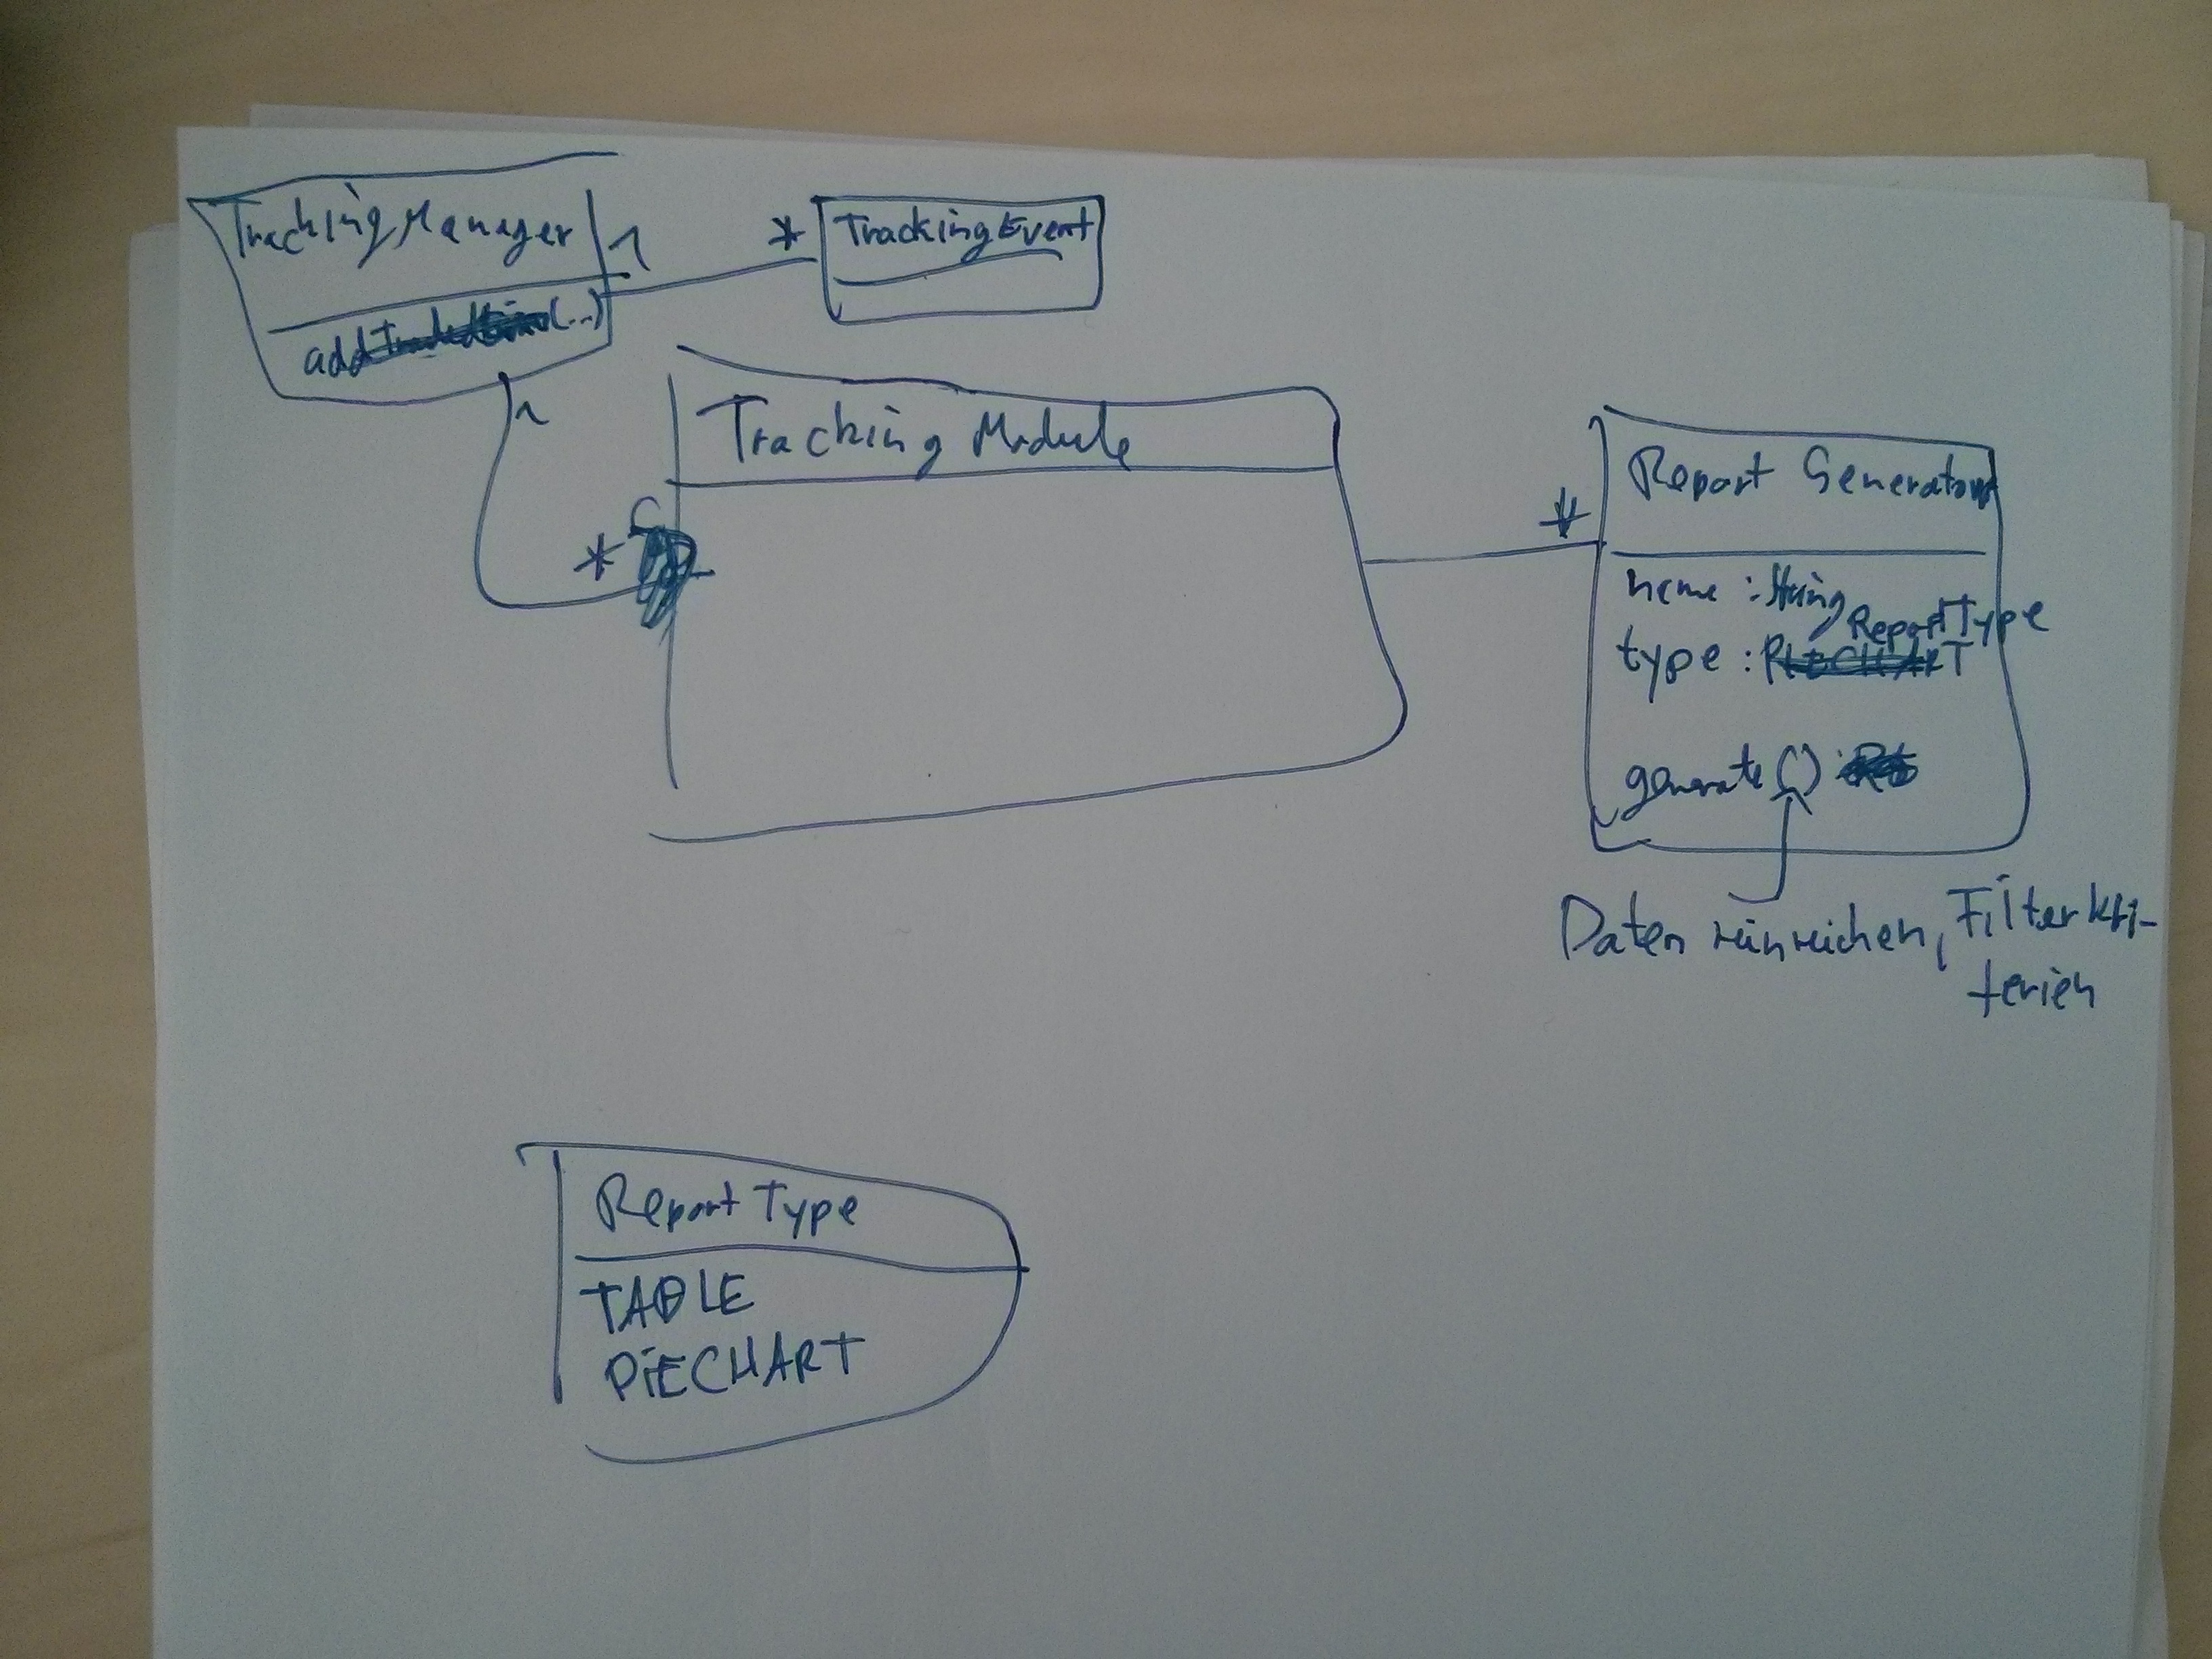 TrackingManager
1
*
TrackingEvent
add (...)
1
Tracking Module
*
*
Report Generator
name : String
ReportType
type : PIECHART
generate ()
Daten reinreichen, Filterkri-
terien
Report Type
TABLE
PIECHART